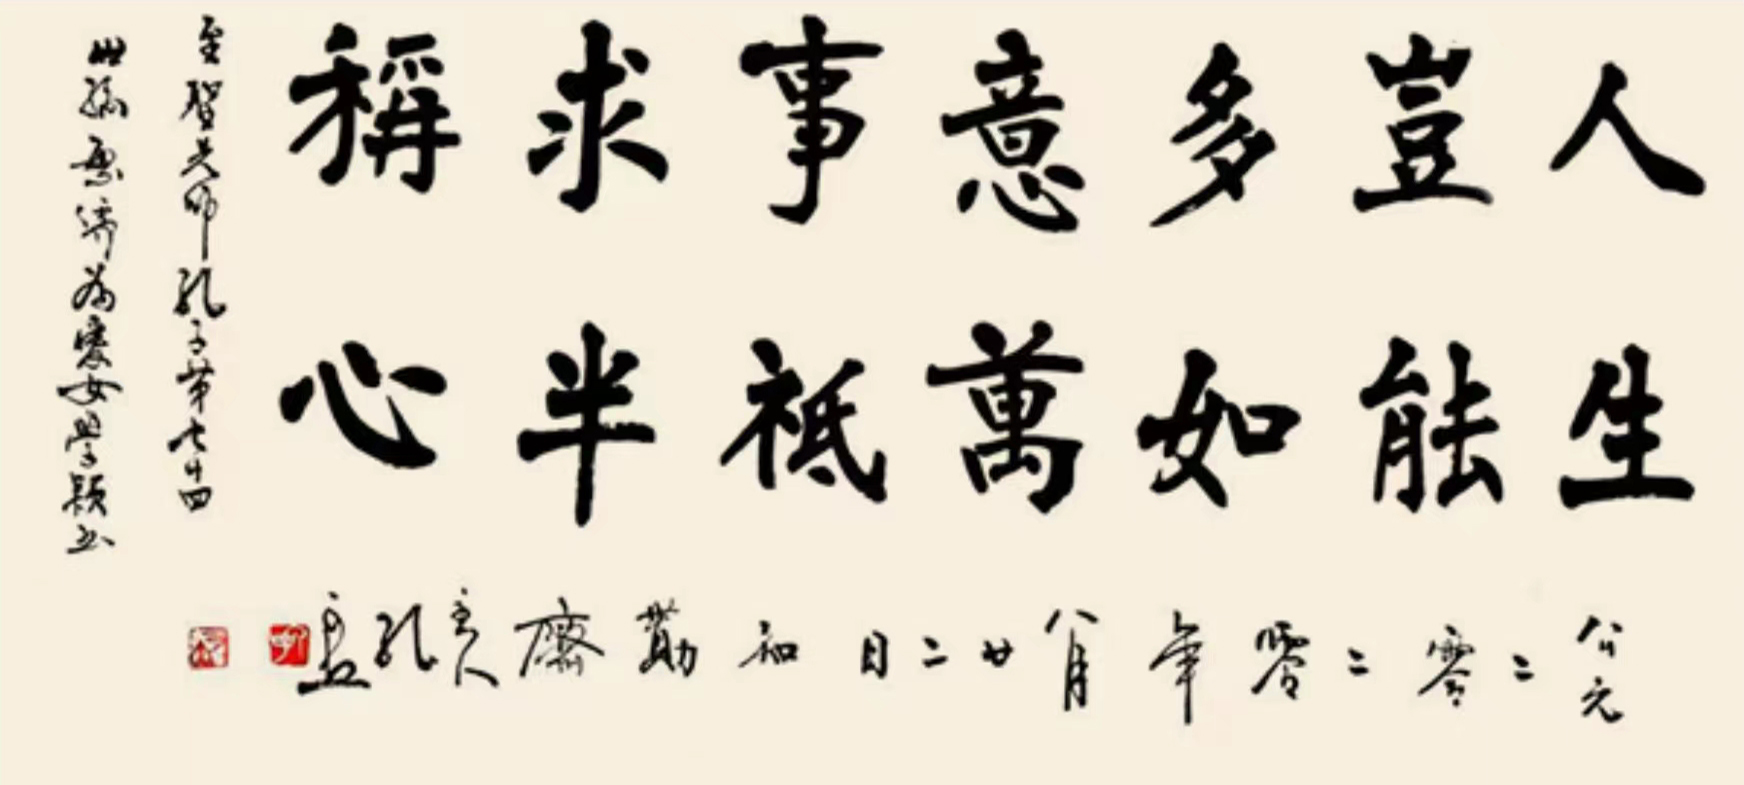 人生
豈能
多如
意萬
事祗
求半
稱心
至聖先師孔子第七十四
世孫繁濟為愛女學穎书
公元二零二零年八月廿二日和勤齋主人孔